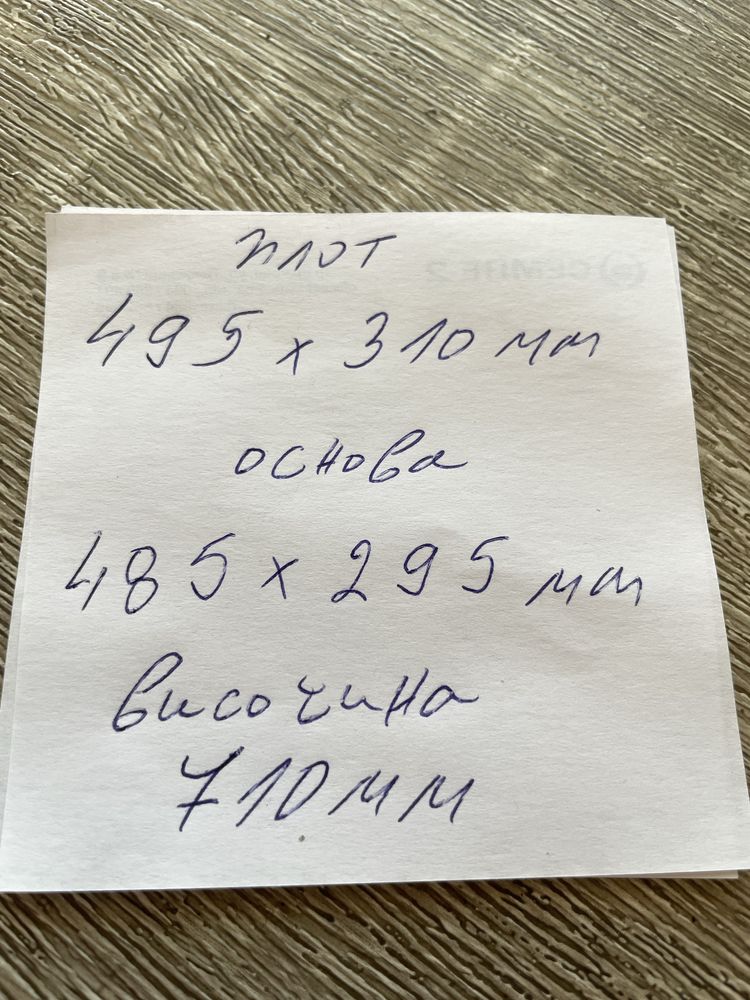 плот
495 x 310 мм
основа
485 x 295 мм
височина
710 мм